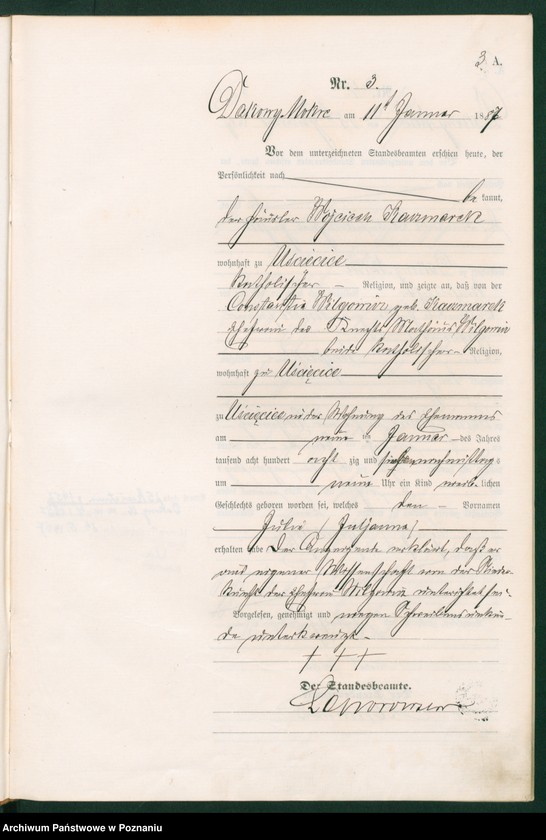 3. A.
Nr. 3.
Dakowy Mokre am 11t Januar 1887
Vor dem unterzeichneten Standesbeamten erschien heute, der
Persönlichkeit nach
be kannt,
der Häusler Wojciech Kaczmarek
wohnhaft zu Uścięcice
katholischer – Religion, und zeigte an, daß von der
Constantia Wilgowicz geb. Kaczmarek
Ehefrau des Knechts Mathäus
beide katholischer – Religion,
wohnhaft zu Uścięcice
zu Uścięcice in der Wohnung des Ehemannes
am neun ten Januar des Jahres
tausend acht hundert acht zig und sieben nachmittags
um neun Uhr ein Kind weib lichen
Geschlechts geboren worden sei, welches den – Vornamen
Julia (Juljanna)
erhalten habe Der Anzeigende erklärt, daß er
aus eigener Wissenschaft von der Nieder-
kunft der Ehefrau unterrichtet sei.
Vorgelesen, genehmigt und wegen Schreibensunkun-
de unterkreuzt –
+ + +
Der Standesbeamte.
Archiwum Państwowe w Poznaniu